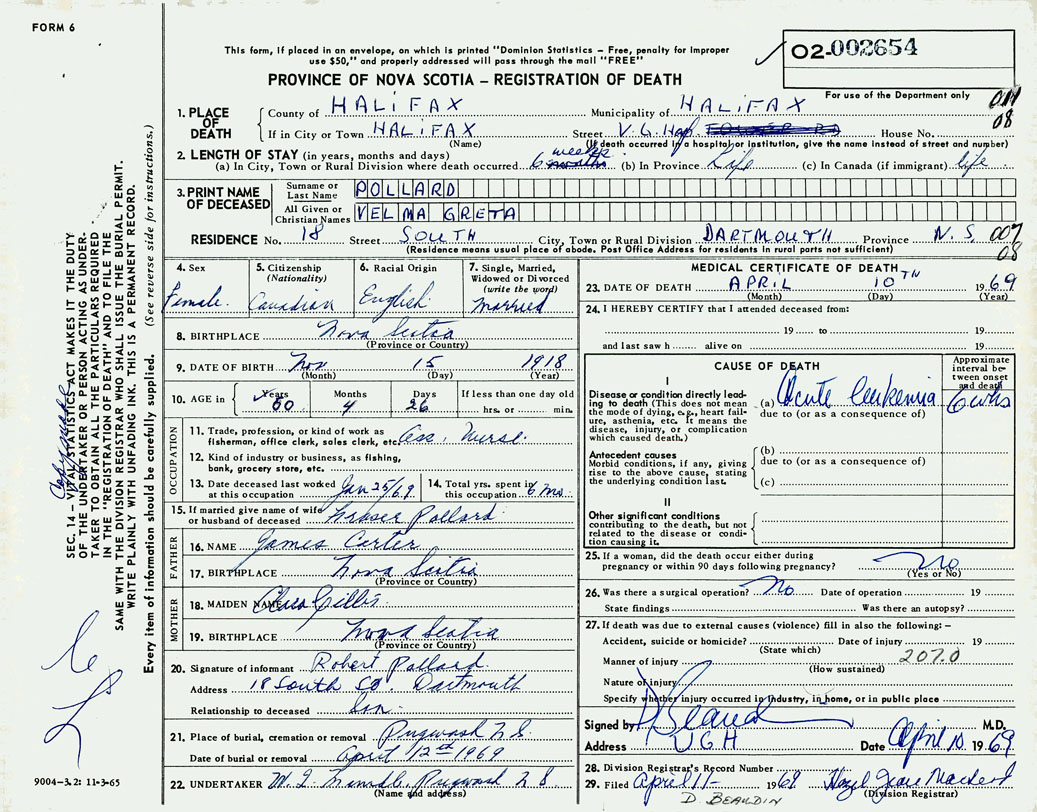 FORM 6
This form, if placed in an envelope, on which is printed "Dominion Statistics – Free, penalty for improper
use $50," and properly addressed will pass through the mail "FREE"
PROVINCE OF NOVA SCOTIA – REGISTRATION OF DEATH
O2-002654
For use of the Department only
08
1. PLACE OF DEATH
County of HALIFAX Municipality of HALIFAX
If in City or Town HALIFAX Street V.G. Hosp. House No.
(Name) (If death occurred in a hospital or institution, give the name instead of street and number)
2. LENGTH OF STAY (in years, months and days)
(a) In City, Town or Rural Division where death occurred 6 weeks (b) In Province Life (c) In Canada (if immigrant) life
3. PRINT NAME OF DECEASED
Surname or Last Name POLLARD
All Given or Christian Names VELMA GRETA
RESIDENCE No. 18 Street SOUTH City, Town or Rural Division DARTMOUTH Province N.S. 007
(Residence means usual place of abode. Post Office Address for residents in rural parts not sufficient) 08
4. Sex Female.
5. Citizenship (Nationality) Canadian
6. Racial Origin English
7. Single, Married, Widowed or Divorced (write the word) Married
8. BIRTHPLACE Nova Scotia
(Province or Country)
9. DATE OF BIRTH Nov 15 1918
(Month) (Day) (Year)
10. AGE in Years 50 Months 4 Days 26 If less than one day old hrs. or min.
OCCUPATION
11. Trade, profession, or kind of work as
fisherman, office clerk, sales clerk, etc. Ass. Nurse.
12. Kind of industry or business, as fishing,
bank, grocery store, etc.
13. Date deceased last worked at this occupation Jan 25/69
14. Total yrs. spent in this occupation 6 mo.
15. If married give name of wife or husband of deceased Fraser Pollard
FATHER
16. NAME James Carter
17. BIRTHPLACE Nova Scotia
(Province or Country)
MOTHER
18. MAIDEN NAME Clara Gillis
19. BIRTHPLACE Nova Scotia
(Province or Country)
20. Signature of informant Robert Pollard
Address 18 South St. Dartmouth
Relationship to deceased Son
21. Place of burial, cremation or removal Pugwash N.S.
Date of burial or removal April 12th 1969
22. UNDERTAKER Pugwash N S
(Name and address)
MEDICAL CERTIFICATE OF DEATH
23. DATE OF DEATH APRIL 10TH 1969
(Month) (Day) (Year)
24. I HEREBY CERTIFY that I attended deceased from:
19 to 19
and last saw h alive on 19
CAUSE OF DEATH
Approximate interval between onset and death
I
Disease or condition directly leading to death (This does not mean the mode of dying, e.g., heart failure, asthenia, etc. It means the disease, injury, or complication which caused death.)
(a) Acute leukemia 6 wks
due to (or as a consequence of)
Antecedent causes
Morbid conditions, if any, giving rise to the above cause, stating the underlying condition last.
(b)
due to (or as a consequence of)
(c)
II
Other significant conditions
contributing to the death, but not related to the disease or condition causing it.
25. If a woman, did the death occur either during
pregnancy or within 90 days following pregnancy? No
(Yes or No)
26. Was there a surgical operation? No Date of operation 19
State findings Was there an autopsy?
27. If death was due to external causes (violence) fill in also the following: –
Accident, suicide or homicide? Date of injury 19
(State which)
Manner of injury 207.0
(How sustained)
Nature of injury
Specify whether injury occurred in industry, in home, or in public place
Signed by M.D.
Address VGH Date April 10. 1969
28. Division Registrar's Record Number
29. Filed April 11- 1969
(Division Registrar)
D. BEAUDIN
SEC. 14 – VITAL STATISTICS ACT MAKES IT THE DUTY
OF THE UNDERTAKER OR PERSON ACTING AS UNDER-
TAKER TO OBTAIN ALL THE PARTICULARS REQUIRED
IN THE "REGISTRATION OF DEATH" AND TO FILE THE
SAME WITH THE DIVISION REGISTRAR WHO SHALL ISSUE THE BURIAL PERMIT.
WRITE PLAINLY WITH UNFADING INK. THIS IS A PERMANENT RECORD.
Every item of information should be carefully supplied. (See reverse side for instructions.)
9004-3.2: 11-3-65